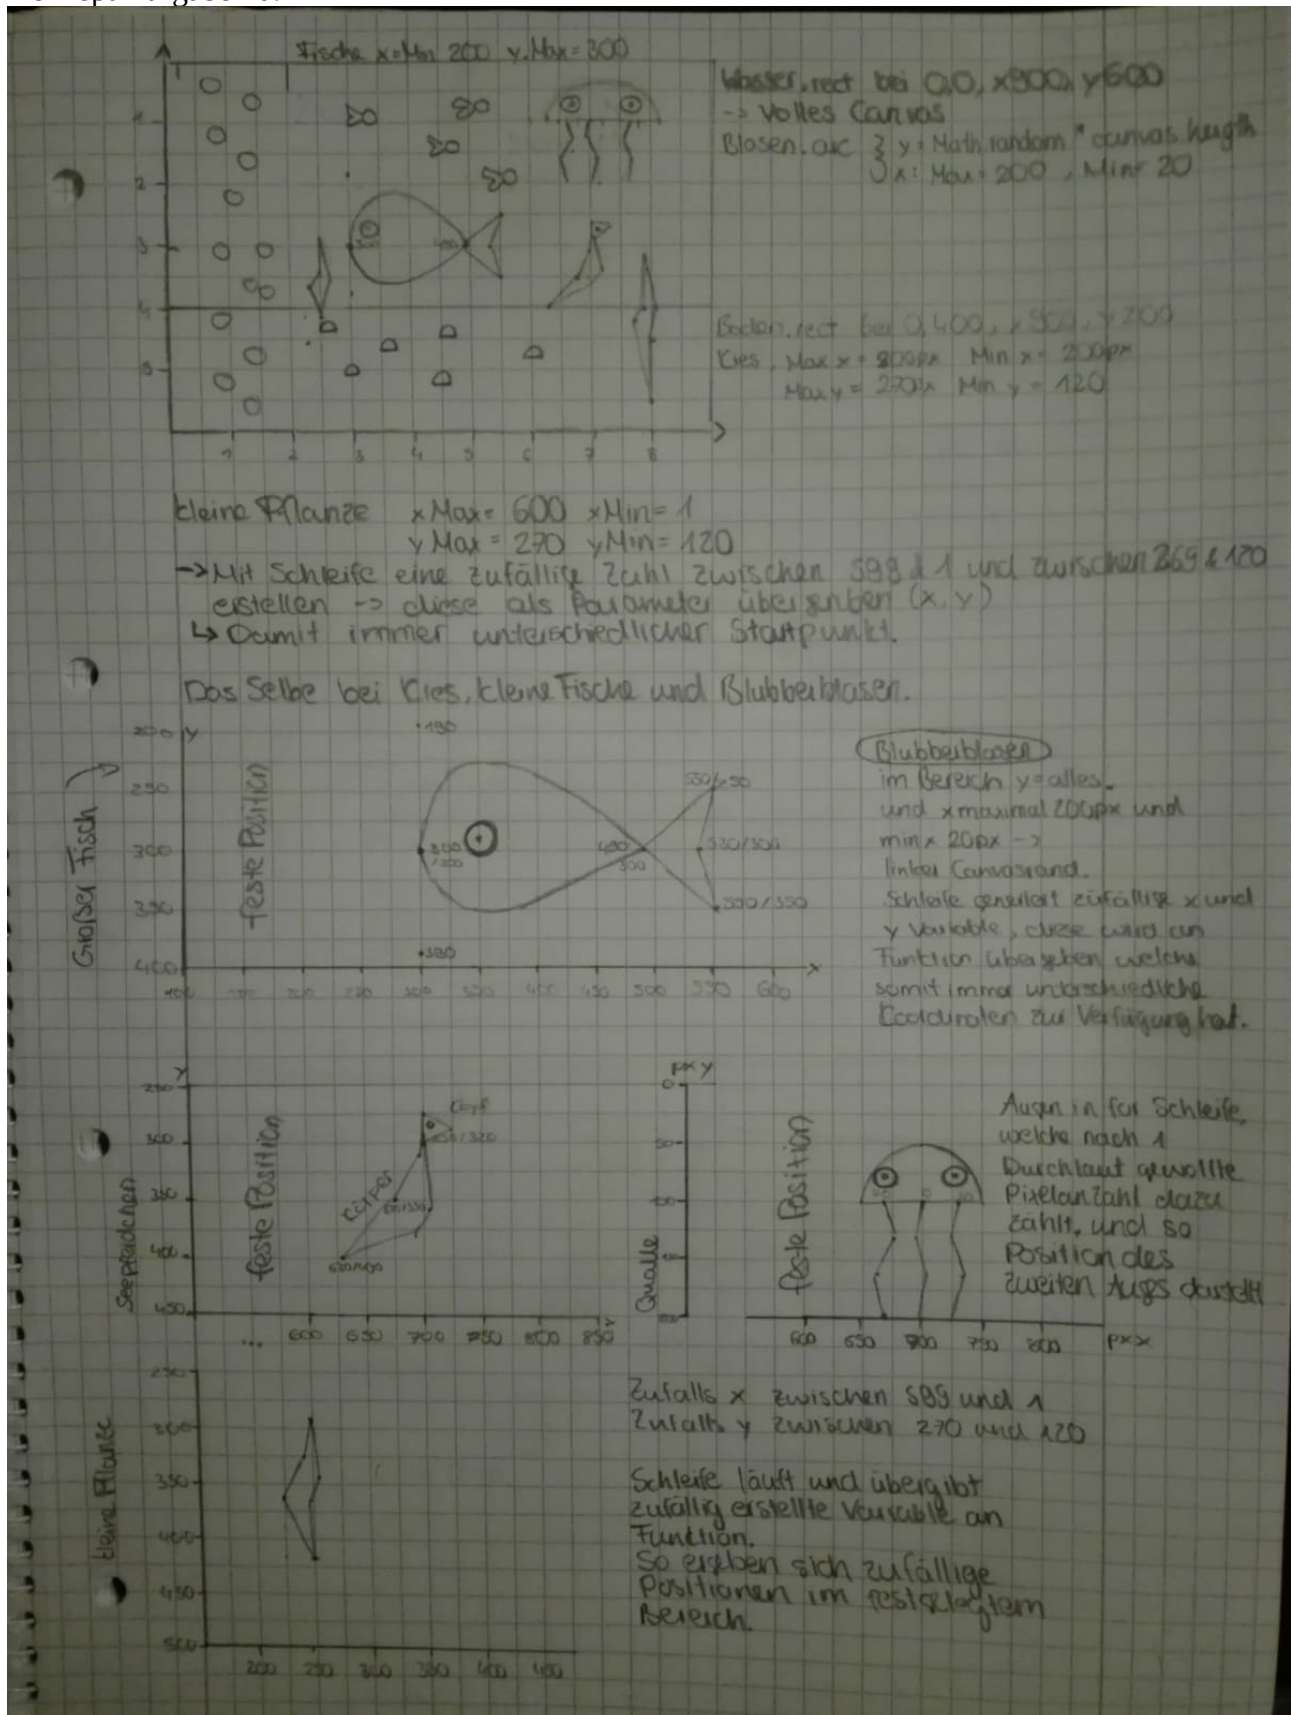 Fische x=Min 200 y.Max=300
Wasser.rect bei 0,0, x900, y600
-> volles Canvas
Blasen.arc } y: Math.random * canvas.heigth
x: Max=200, Min=20
1
2
3
4
5
1 2 3 4 5 6 7 8
Boden.rect bei 0,400, x900, y200
Kies, Max x= 800px Min x= 200px
Max y= 270px Min y= 120
kleine Pflanze xMax= 600 xMin= 1
yMax= 270 yMin= 120
-> Mit Schleife eine zufällige Zahl zwischen 599 & 1 und zwischen 269 & 120
erstellen -> diese als Parameter (x, y)
↳ Damit immer unterschiedlicher Startpunkt.
Das Selbe bei Kies, kleine Fische und Blubberblasen.
Großer Fisch
feste Position
200 y
190
250
300
350
400 x
380
530/300
550/350
300 350 400 450 500 550 600
Blubberblasen
im Bereich y=alles.
und x maximal 200px und
min x 20px ->
linker Canvasrand.
Schleife generiert zufällige x und
y Variable, diese wird an
Funktion übergeben welche
somit immer unterschiedliche
Coordinaten zur Verfügung hat.
Seepferdchen
feste Position
y
250
300
350
400
450
Kopf
Körper
... 600 650 700 750 800 850
Qualle
feste Position
px y
0
50
600 650 700 750 800 px x
Augen in for Schleife,
welche nach 1
Durchlauf gewollte
Pixelanzahl dazu
zählt, und so
Position des
zweiten Augs darstellt
kleine Pflanze
250
300
350
400
450
500
200 250 300 350 400 450
Zufalls x zwischen 599 und 1
Zufalls y zwischen 270 und 120
Schleife läuft und übergibt
zufällig erstellte Variable an
Funktion.
So ergeben sich zufällige
Positionen im festgelegtem
Bereich.